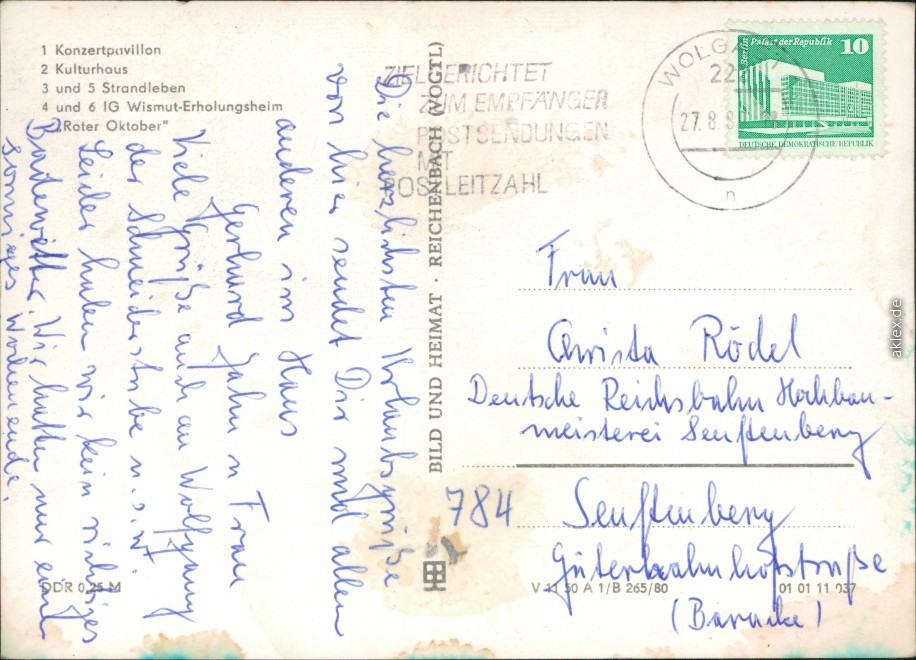 1 Konzertpavillon
2 Kulturhaus
3 und 5 Strandleben
4 und 6 IG Wismut-Erholungsheim
"Roter Oktober"
Die herzlichsten Urlaubsgrüße
von hier sendet Dir und allen
anderen im Haus
Gerhard Jahn u Frau
Viele Grüße auch an Wolfgang
der Schneiderstube u.s.w.
Leider haben wir kein richtiges
Badewetter. Wir hatten nur ein
sonniges Wochenende.
DDR 0,25 M
BILD UND HEIMAT · REICHENBACH (VOGTL)
ZIELGERICHTET
ZUM EMPFÄNGER
POSTSENDUNGEN
MIT
POSTLEITZAHL
WOLGAST
22
27.8.8
n
Berlin Palast der Republik 10
DEUTSCHE DEMOKRATISCHE REPUBLIK
Frau
Christa Rödel
Deutsche Reichsbahn Hochbau-
meisterei Senftenberg
784 Senftenberg
Güterbahnhofstraße
(Baracke)
V 11 50 A 1/B 265/80 01 01 11 037
aklex.de